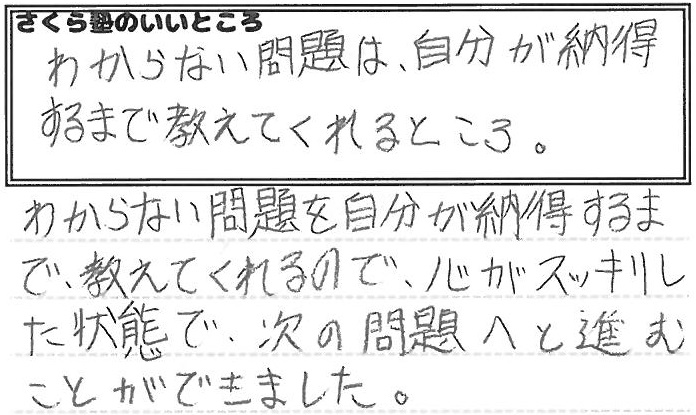 さくら塾のいいところ
わからない問題は、自分が納得
するまで教えてくれるところ。
わからない問題を自分が納得するま
で、教えてくれるので、心がスッキリし
た状態で、次の問題へと進む
ことができました。